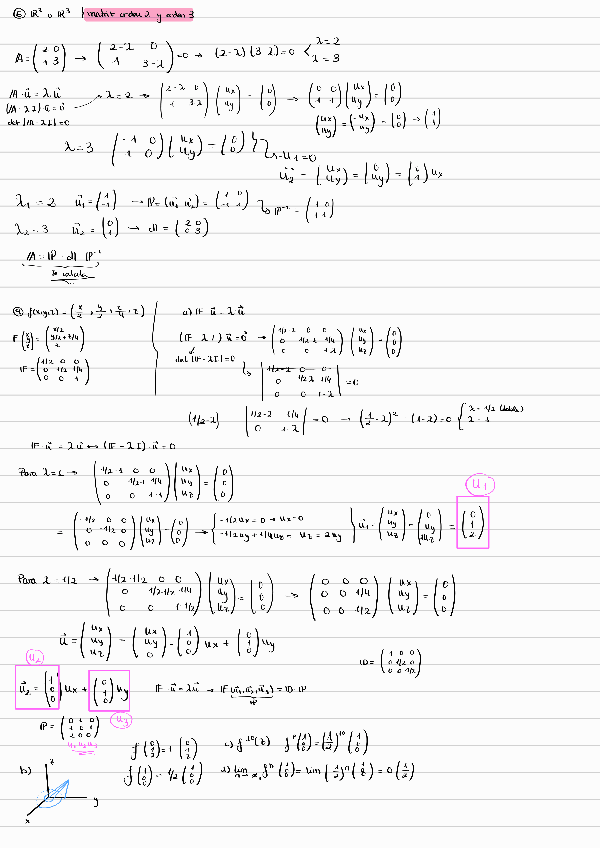 ⑥ ℝ² o ℝ³ | matriz orden 2 y orden 3
A = (2 0; 1 3) → (2-λ 0; 1 3-λ) = 0 → (2-λ)(3-λ) = 0 < λ = 2
λ = 3
A·ū = λ·ū
(A-λI)·ū = 0
det|A-λI| = 0
λ = 2 → (2-λ 0; 1 3-λ)(ux; uy) = (0; 0) → (0 0; 1 1)(ux; uy) = (0; 0)
λ = 3 (-1 0; 1 0)(ux; uy) = (0; 0)
-u1 = 0
ū2 = (ux; uy) = (0; uy) = (0; 1) ux
λ1 = 2 ū1 = (1; -1) → P = (ū1 ū2) = (1 0; -1 1) P⁻¹ = (1 0; 1 1)
λ2 = 3 ū2 = (0; 1) → d = (2 0; 0 3)
A = P · d · P⁻¹
⑨ f(x,y,z) = (x/2, y/2 + z/4, z)
F(x; y; z) = (x/2; y/2+z/4; z)
F = (1/2 0 0; 0 1/2 1/4; 0 0 1)
a) F·ū = λ·ū
(F-λI)·ū = 0 → (1/2-λ 0 0; 0 1/2-λ 1/4; 0 0 1-λ)(ux; uy; uz) = (0; 0; 0)
det|F-λI| = 0
|1/2-λ 0 0; 0 1/2-λ 1/4; 0 0 1-λ| = 0
(1/2-λ) |1/2-λ 1/4; 0 1-λ| = 0 → (1/2-λ)² (1-λ) = 0 { λ = 1/2 (doble)
λ = 1
F·ū = λ·ū ↔ (F-λI)·ū = 0
Para λ=1 → (1/2-1 0 0; 0 1/2-1 1/4; 0 0 1-1)(ux; uy; uz) = (0; 0; 0)
u1
= (-1/2 0 0; 0 -1/2 0; 0 0 0)(ux; uy; uz) = (0; 0; 0) → { -1/2ux = 0 → ux = 0
-1/2uy + 1/4uz = uz = 2uy
ū1 = (ux; uy; uz) = (0; uy; 2uy) = (0; 1; 2)
Para λ=1/2 → (1/2-1/2 0 0; 0 1/2-1/2 1/4; 0 0 1-1/2)(ux; uy; uz) = (0; 0; 0) → (0 0 0; 0 0 1/4; 0 0 1/2)(ux; uy; uz) = (0; 0; 0)
ū = (ux; uy; uz) = (ux; uy; 0) = (1; 0; 0) ux + (0; 1; 0) uy
D = (1 0 0; 0 1/2 0; 0 0 1/2)
u2
ū2 = (1; 0; 0) ux + (0; 1; 0) uy
F·ū = λū → F(u1, u2, u3) = D·P
P
u3
P = (0 1 0; 1 0 1; 2 0 0)
u1 u2 u3
f(0; 1; 2) = 1 (0; 1; 2)
c) f¹⁰(z) fⁿ(1; 0; 0) = (1/2)¹⁰ (1; 0; 0)
b)
z
y
x
f(1; 0; 0) = 1/2 (1; 0; 0)